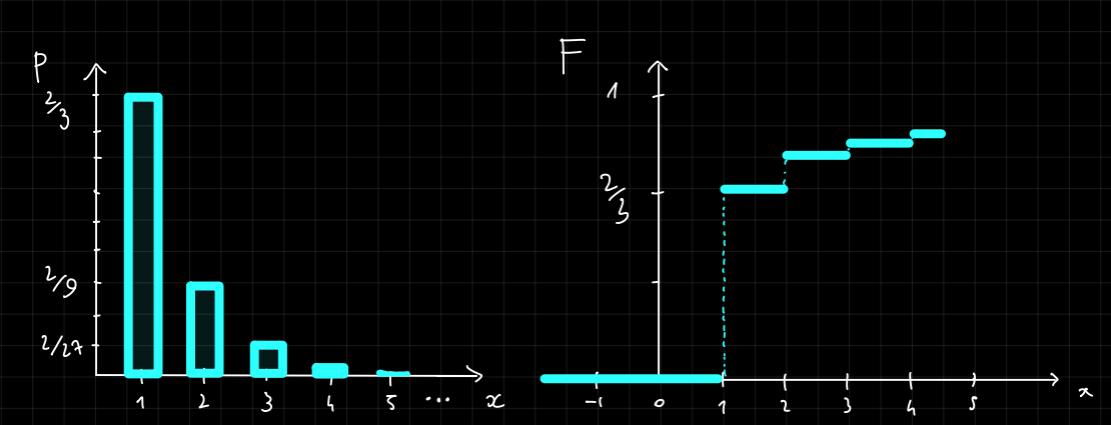 P
2/3
2/9
2/27
1 2 3 4 5 ... x
F
1
2/3
-1 0 1 2 3 4 5 x